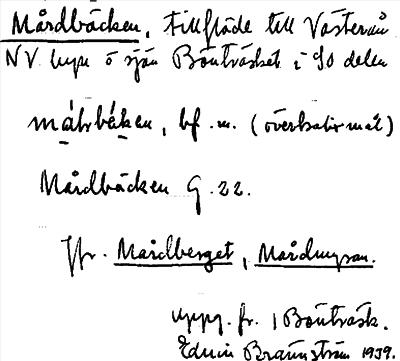 Mårdbäcken, tillflöde till Västerån
NV. upp å sjön Böuträsket i SO delen
måhrbäken, bf. m. (överkalix mål)
Mårdbäcken G. 22.
Jfr. Mårdberget, Mårdmyran.
uppg. fr. Böuträsk.
Edvin Brännström 1939.